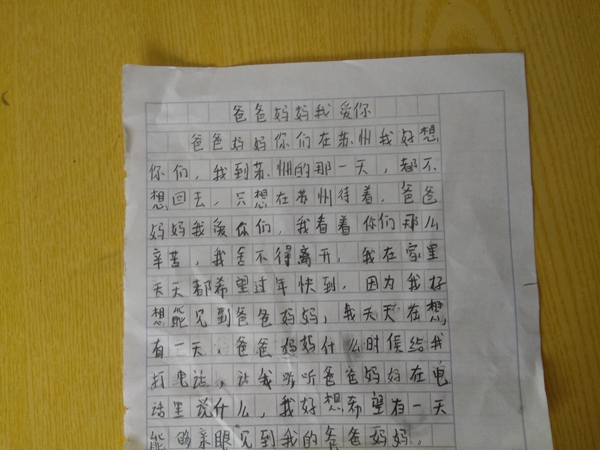 爸爸妈妈我爱你
爸爸妈妈你们在苏州我好想
你们，我到苏州的那一天，都不
想回去，只想在苏州待着，爸爸
妈妈我爱你们，我看着你们那么
辛苦，我舍不得离开，我在家里
天天都希里过年快到，因为我好
想能见到爸爸妈妈，我天天在想，
有一天，爸爸妈妈什么时候给我
打电话，让我听听爸爸妈妈在电
话里说什么，我好想希望有一天
能够亲眼见到我的爸爸妈妈。